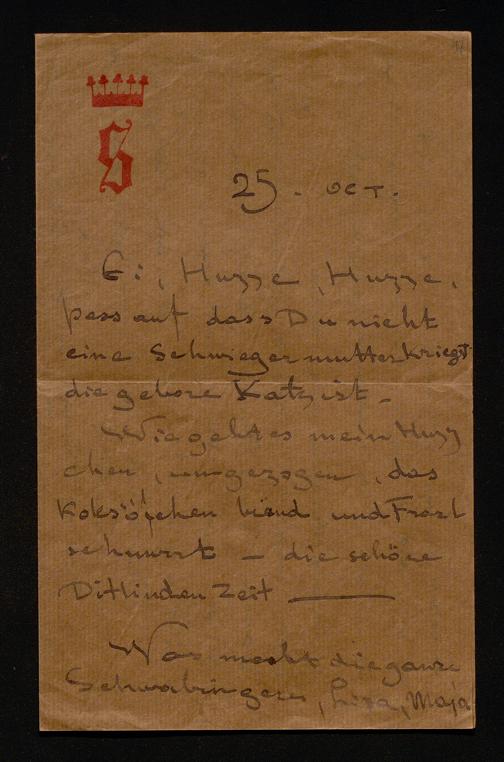 S
25. OCT.
Ei, Huzze, Huzze,
pass auf dass Du nicht
eine Schwiegermutter kriegst
die geborne Katz ist –
Wie geht es mein Huzz
chen, umgezogen, das
Koksöfchen und Frazl
schnurrt – die schöne
Ditlinden Zeit —
Was macht die ganze
Schwabingerei, Lisa, Maja